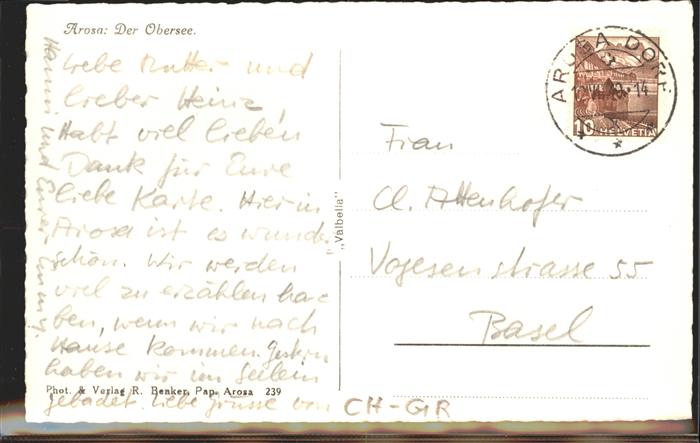 Arosa: Der Obersee.
Liebe Mutter und
lieber Heinz,
Habt viel lieben
Dank für Eure
liebe Karte. Hier in
Arosa ist es wunder
schön. Wir werden
viel zu erzählen ha
ben, wenn wir nach
Hause kommen. Gestern
haben wir im Seelein
gebadet. Liebe Grüsse von
Hanni und Eurer Emmy.
Phot. & Verlag R. Benker, Pap. Arosa 239
„Valbella"
AROSA DORF
VII. 14
10 HELVETIA
Frau
Cl. Attenhofer
Vogesenstrasse 55
Basel
CH-GR